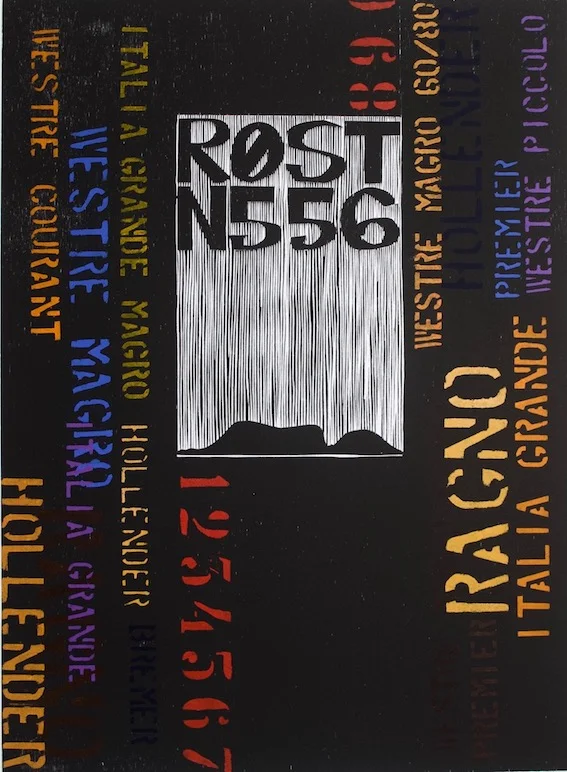 RØST
N556
WESTRE COURANT
HOLLENDER
WESTRE MAGRO
ITALIA GRANDE
ITALIA GRANDE MAGRO HOLLENDER
BREMER
1234567
068
WESTRE MAGRO 60/80
HOLLENDER
PREMIER
WESTRE PICCOLO
RAGNO
ITALIA GRANDE
PREMIER